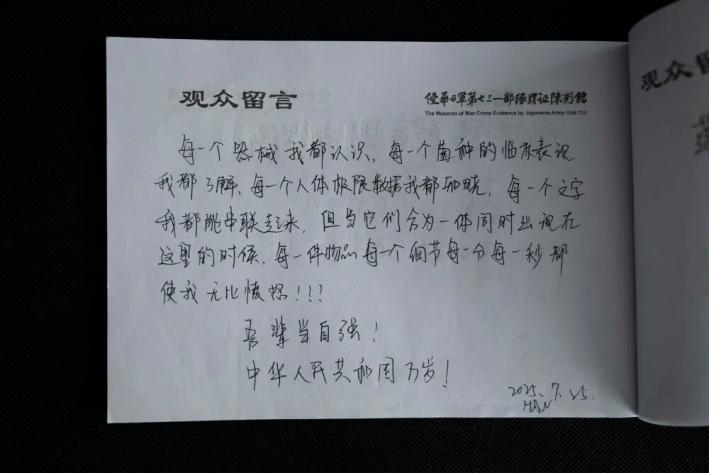 观众留言
侵华日军第七三一部队罪证陈列馆
The Museum of War Crime Evidence by Japanese Army Unit 731
每一个器械我都认识、每一个菌种的临床表现
我都了解、每一个人体极限数据我都知晓，每一个文字
我都能串联起来，但当它们合为一体同时出现在
这里的时候，每一件物品每一个细节每一分每一秒都
使我无比愤怒！！！
吾辈当自强！
中华人民共和国万岁！
2025.7.25.
HAN
观众留